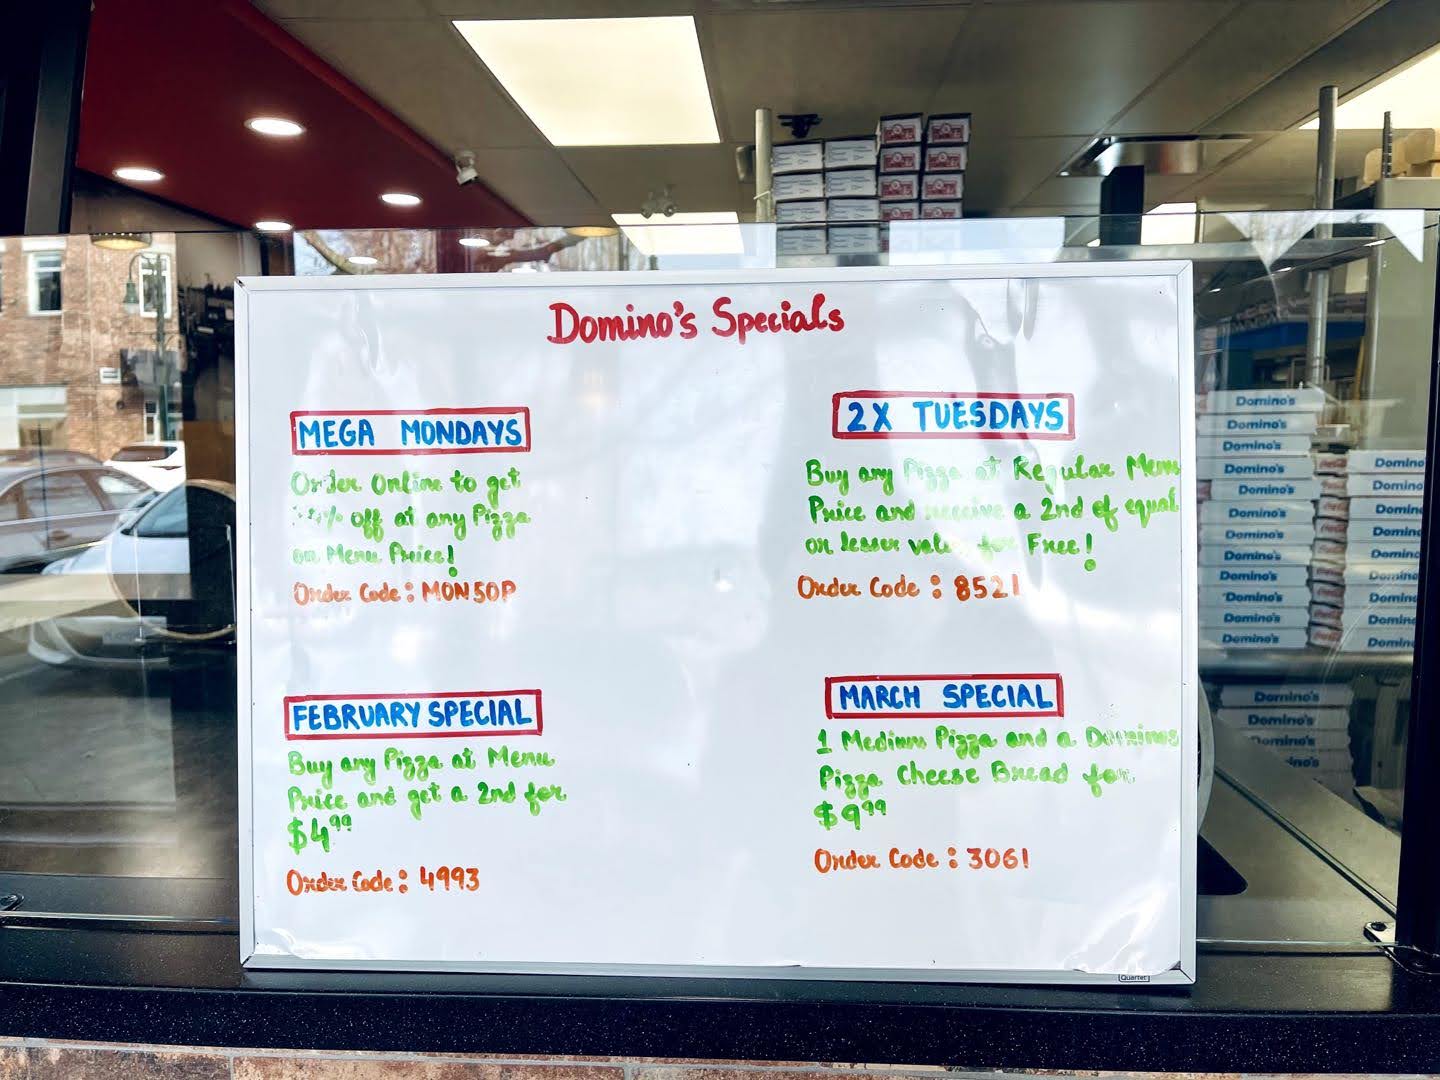 Domino's Specials
MEGA MONDAYS
Order Online to get
% off at any Pizza
on Menu Price!
Order Code: MON50P
2X TUESDAYS
Buy any Pizza at Regular Menu
Price and receive a 2nd of equal
or lesser value for Free!
Order Code: 8521
FEBRUARY SPECIAL
Buy any Pizza at Menu
Price and get a 2nd for
$4.99
Order Code: 4993
MARCH SPECIAL
1 Medium Pizza and a Dominos
Pizza Cheese Bread for
$9.99
Order Code: 3061
Quartet
Domino's
Domino's
Domino's
Domino's
Domino's
Domino's
Domino's
Domino's
Domino's
Domino's
Domino's
Domino's
Domino's
Domino's
Domino's